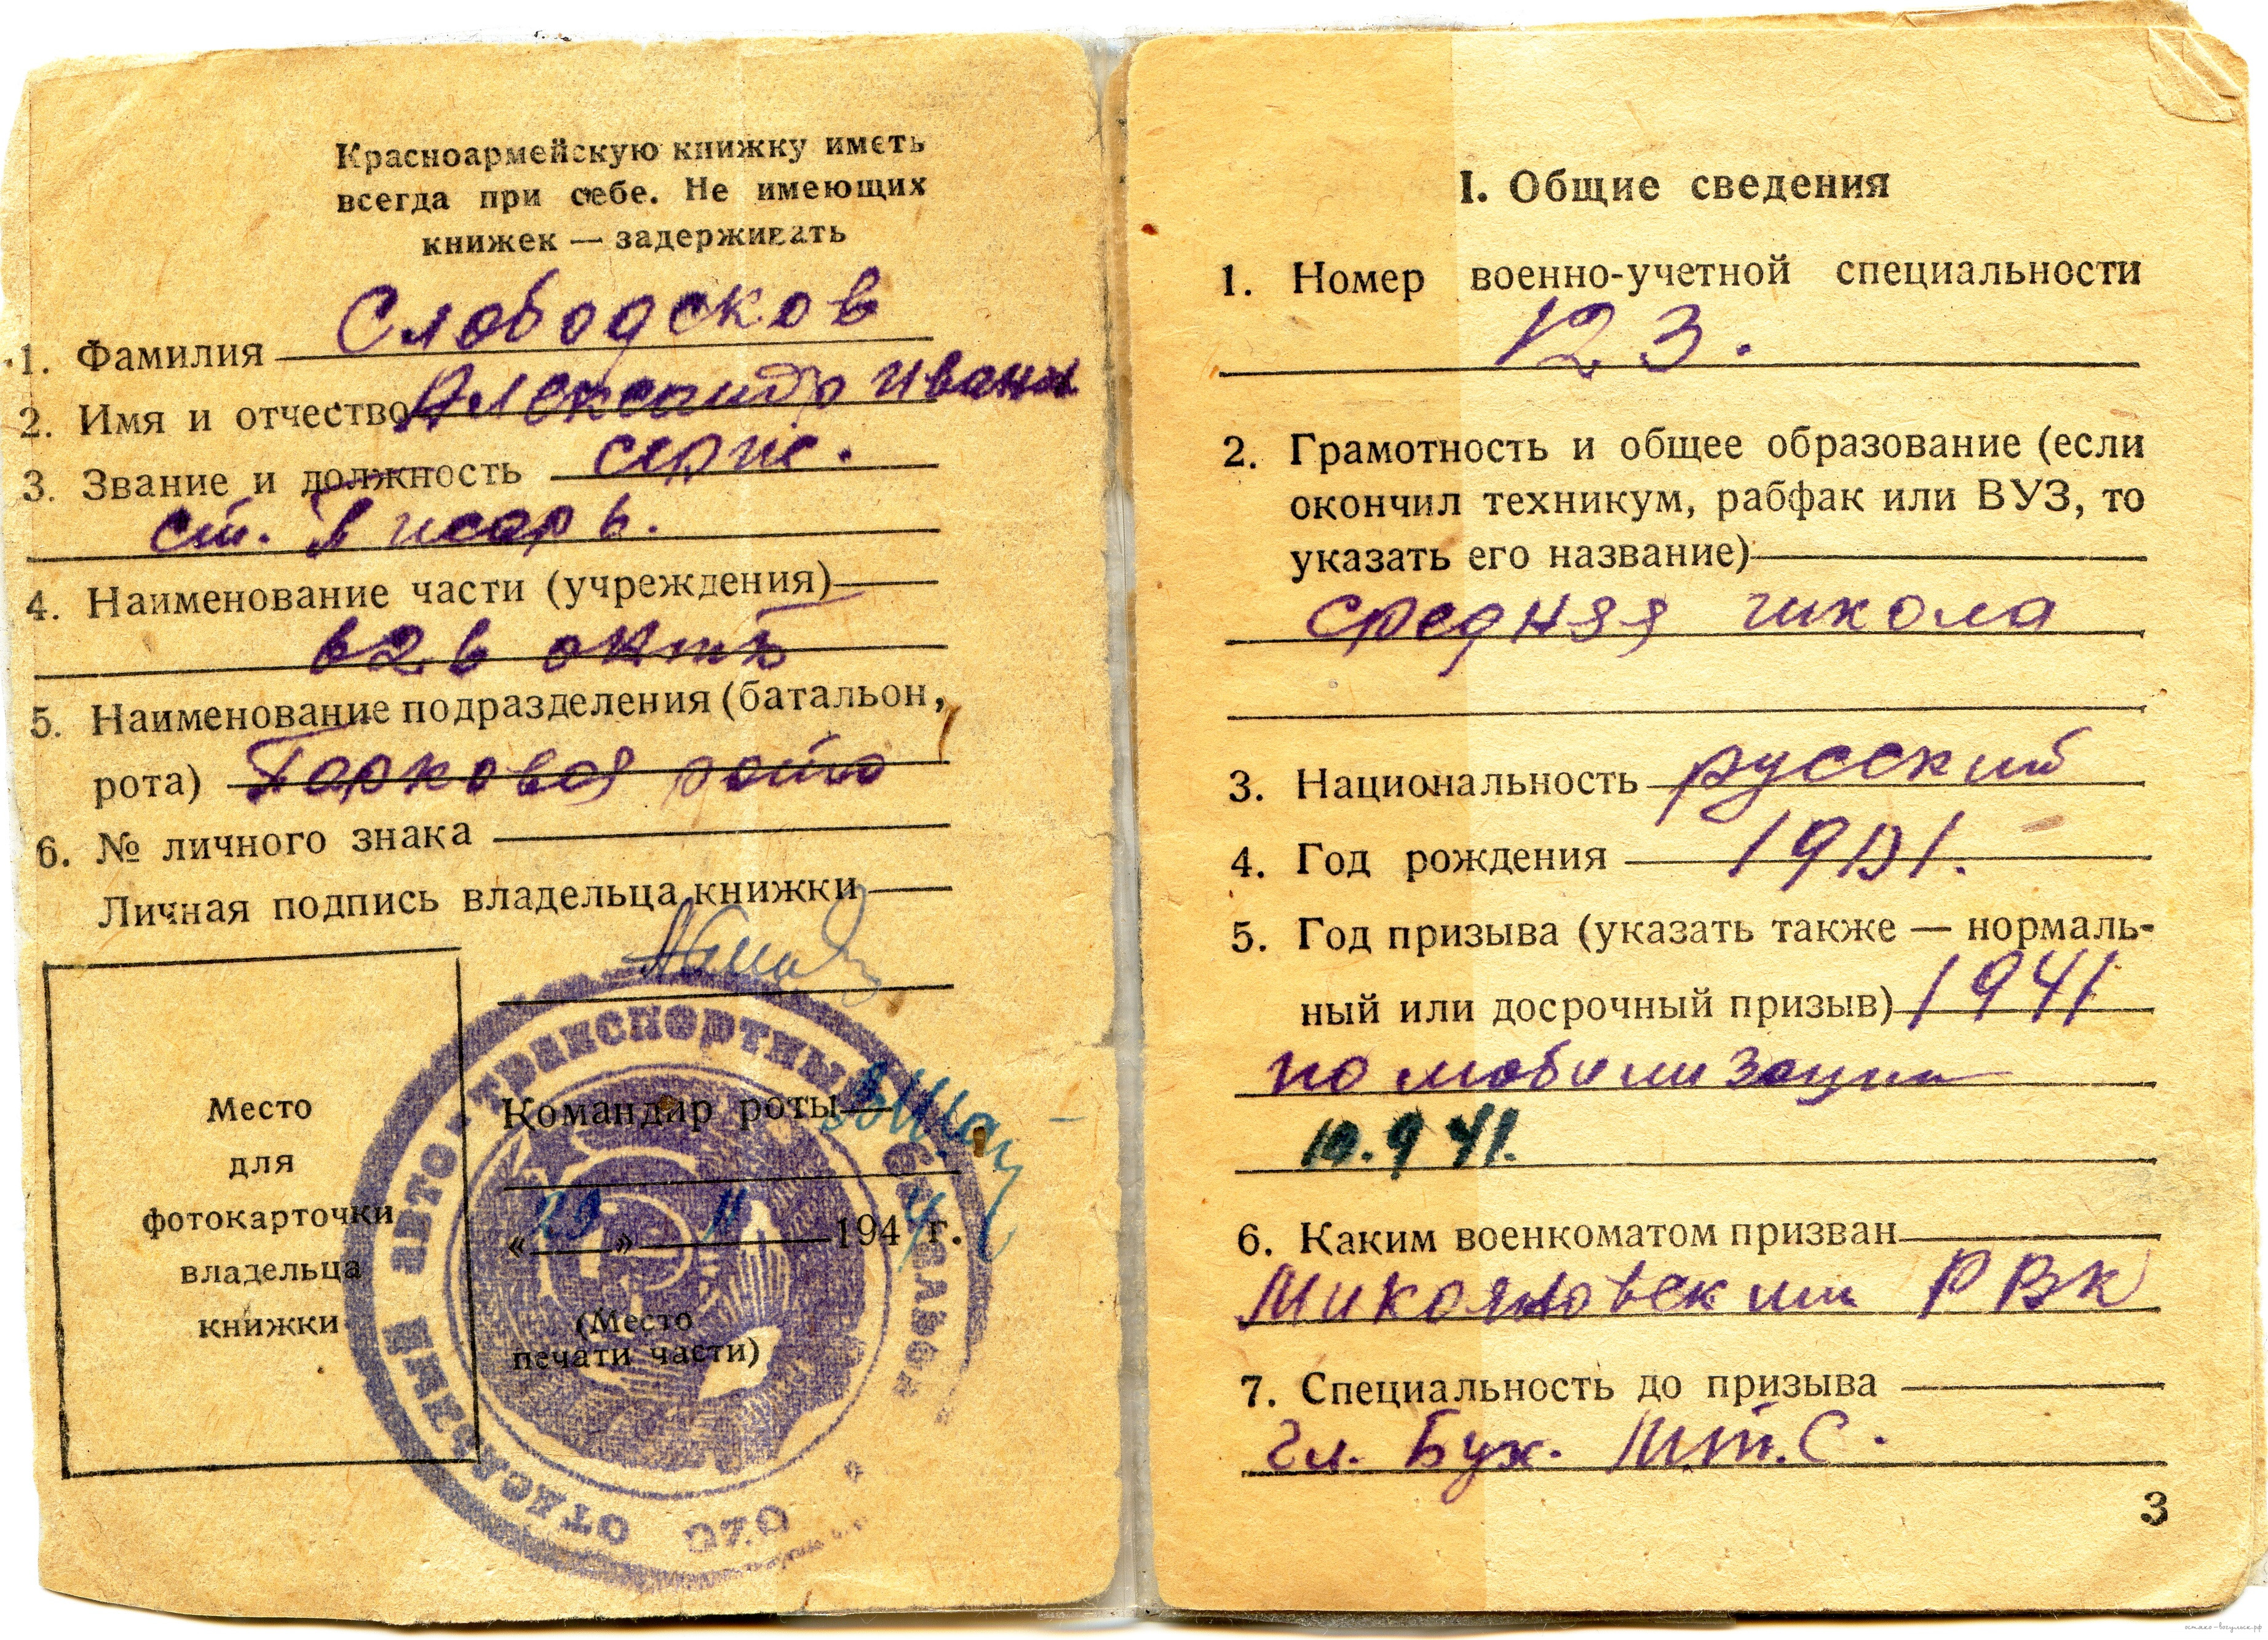 Красноармейскую книжку иметь
всегда при себе. Не имеющих
книжек — задерживать
1. Фамилия Слободсков
2. Имя и отчество Александр Иван
3. Звание и должность серж.
ст. Писарь.
4. Наименование части (учреждения)
626 октб
5. Наименование подразделения (батальон,
рота) Парковая рота
6. № личного знака
Личная подпись владельца книжки
Место
для
фотокарточки
владельца
книжки
Командир роты
«29» 11 1944 г.
(Место
печати части)
ОТДЕЛЬНЫЙ АВТО-ТРАНСПОРТНЫЙ БАТАЛЬОН
I. Общие сведения
1. Номер военно-учетной специальности
123.
2. Грамотность и общее образование (если
окончил техникум, рабфак или ВУЗ, то
указать его название)
средняя школа
3. Национальность русский
4. Год рождения
5. Год призыва (указать также — нормаль-
ный или досрочный призыв) 1941
по мобилизации
10.9 41.
6. Каким военкоматом призван
Микояновским РВК
7. Специальность до призыва
Гл. Бух. М.Т.С.
3